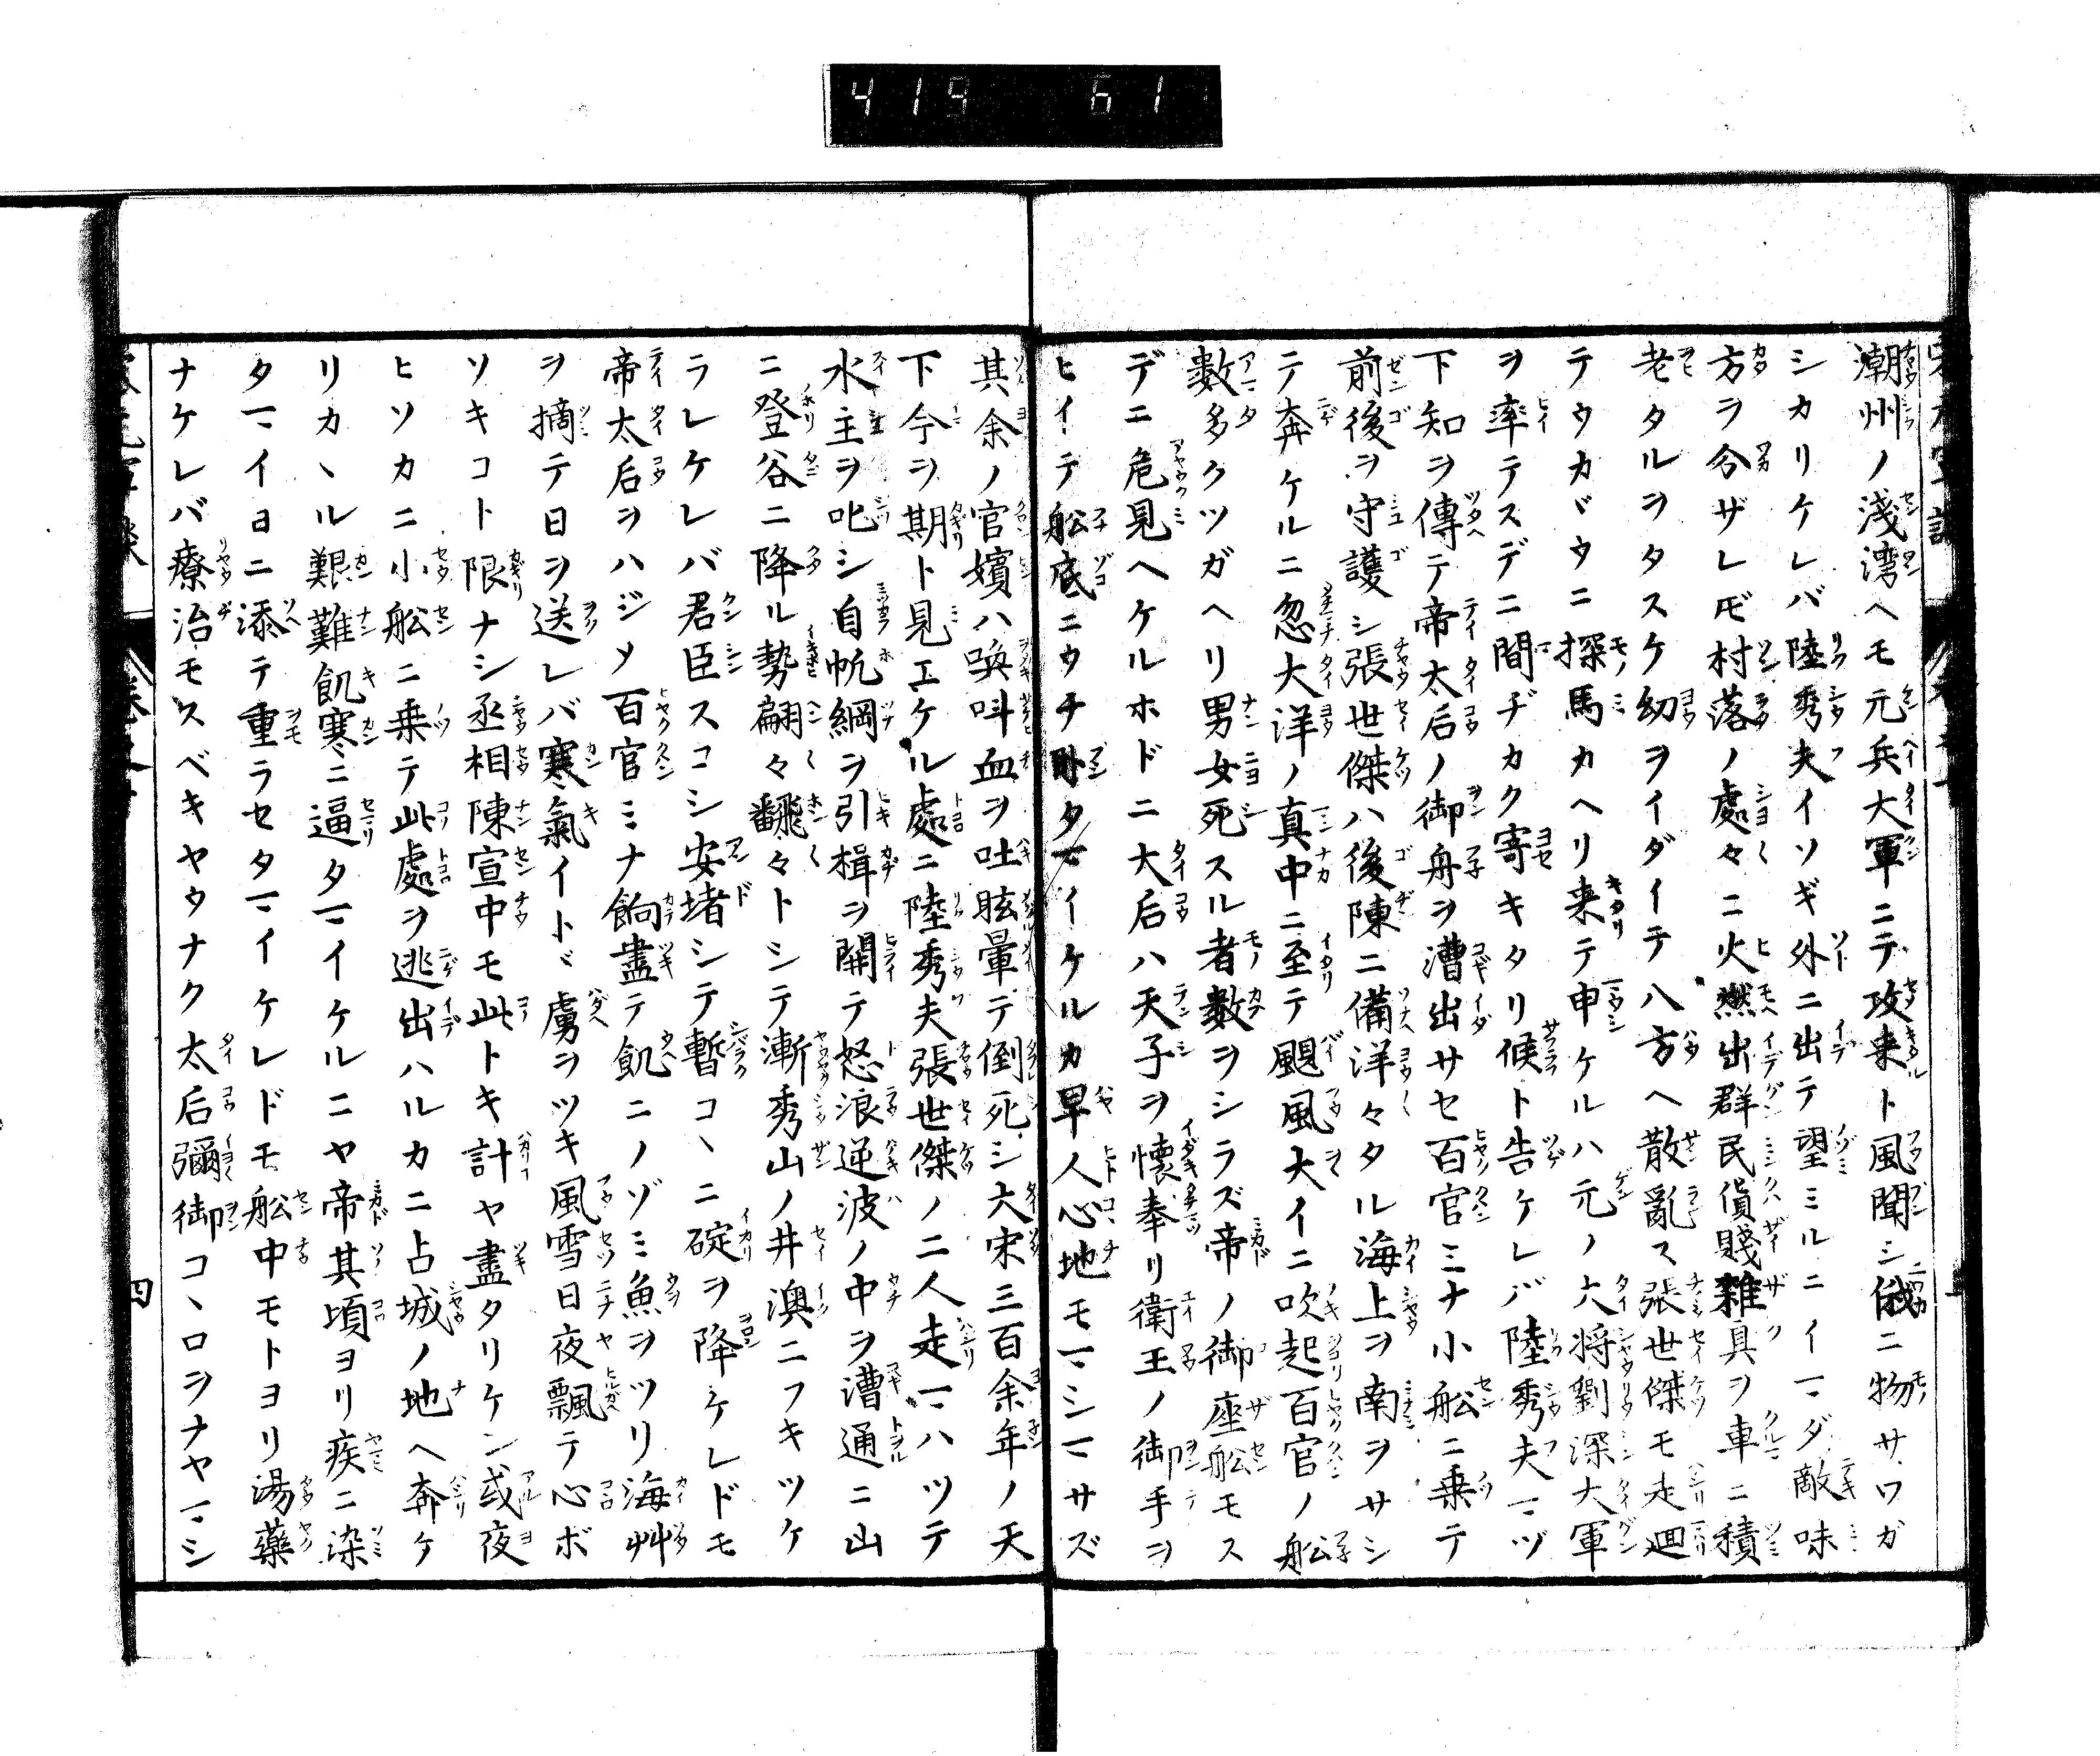 419 61
潮州ノ淺湾ヘモ元兵大軍ニテ攻来ト風聞シ俄ニ物サワガ
シカリケレバ陸秀夫イソギ外ニ出テ望ミルニイマダ敵味
方ヲ分ザレ𪜈村落ノ處々ニ火燃出群民貨賤雜具ヲ車ニ積
老タルヲタスケ幼ヲイダイテ八方ヘ散亂ス張世傑モ走廻
テウカヾウニ探馬カヘリ来テ申ケルハ元ノ大将劉深大軍
ヲ率テスデニ間ヂカク寄キタリ候ト告ケレバ陸秀夫マヅ
下知ヲ傳テ帝太后ノ御舟ヲ漕出サセ百官ミナ小舩ニ乗テ
前後ヲ守護シ張世傑ハ後陳ニ備洋々タル海上ヲ南ヲサシ
テ奔ケルニ忽大洋ノ真中ニ至テ颶風大イニ吹起百官ノ舩
數多クツガヘリ男女死スル者數ヲシラズ帝ノ御座舩モス
デニ危見ヘケルホドニ大后ハ天子ヲ懐奉リ衛王ノ御手ヲ
ヒイテ舩底ニウチ卧タマイケルカ早人心地モマシマサズ
其余ノ官嬪ハ喚呌血ヲ吐眩暈テ倒死シ大宋三百余年ノ天
下今ヲ期ト見エケル處ニ陸秀夫張世傑ノ二人走マハツテ
水主ヲ叱シ自帆綱ヲ引楫ヲ開テ怒浪逆波ノ中ヲ漕通ニ山
ニ登谷ニ降ル勢翩々飜々トシテ漸秀山ノ井澳ニフキツケ
ラレケレバ君臣スコシ安堵シテ暫コヽニ碇ヲ降ケレドモ
帝太后ヲハジメ百官ミナ餉盡テ飢ニノゾミ魚ヲツリ海艸
ヲ摘テ日ヲ送レバ寒氣イトヾ膚ヲツキ風雪日夜飄テ心ボ
ソキコト限ナシ丞相陳宣中モ此トキ計ヤ盡タリケン或夜
ヒソカニ小舩ニ乗テ此處ヲ逃出ハルカニ占城ノ地ヘ奔ケ
リカヽル艱難飢寒ニ逼タマイケルニヤ帝其頃ヨリ疾ニ染
タマイヨニ添テ重ラセタマイケレドモ舩中モトヨリ湯藥
ナケレバ療治モスベキヤウナク太后彌御コヽロヲナヤマシ
四